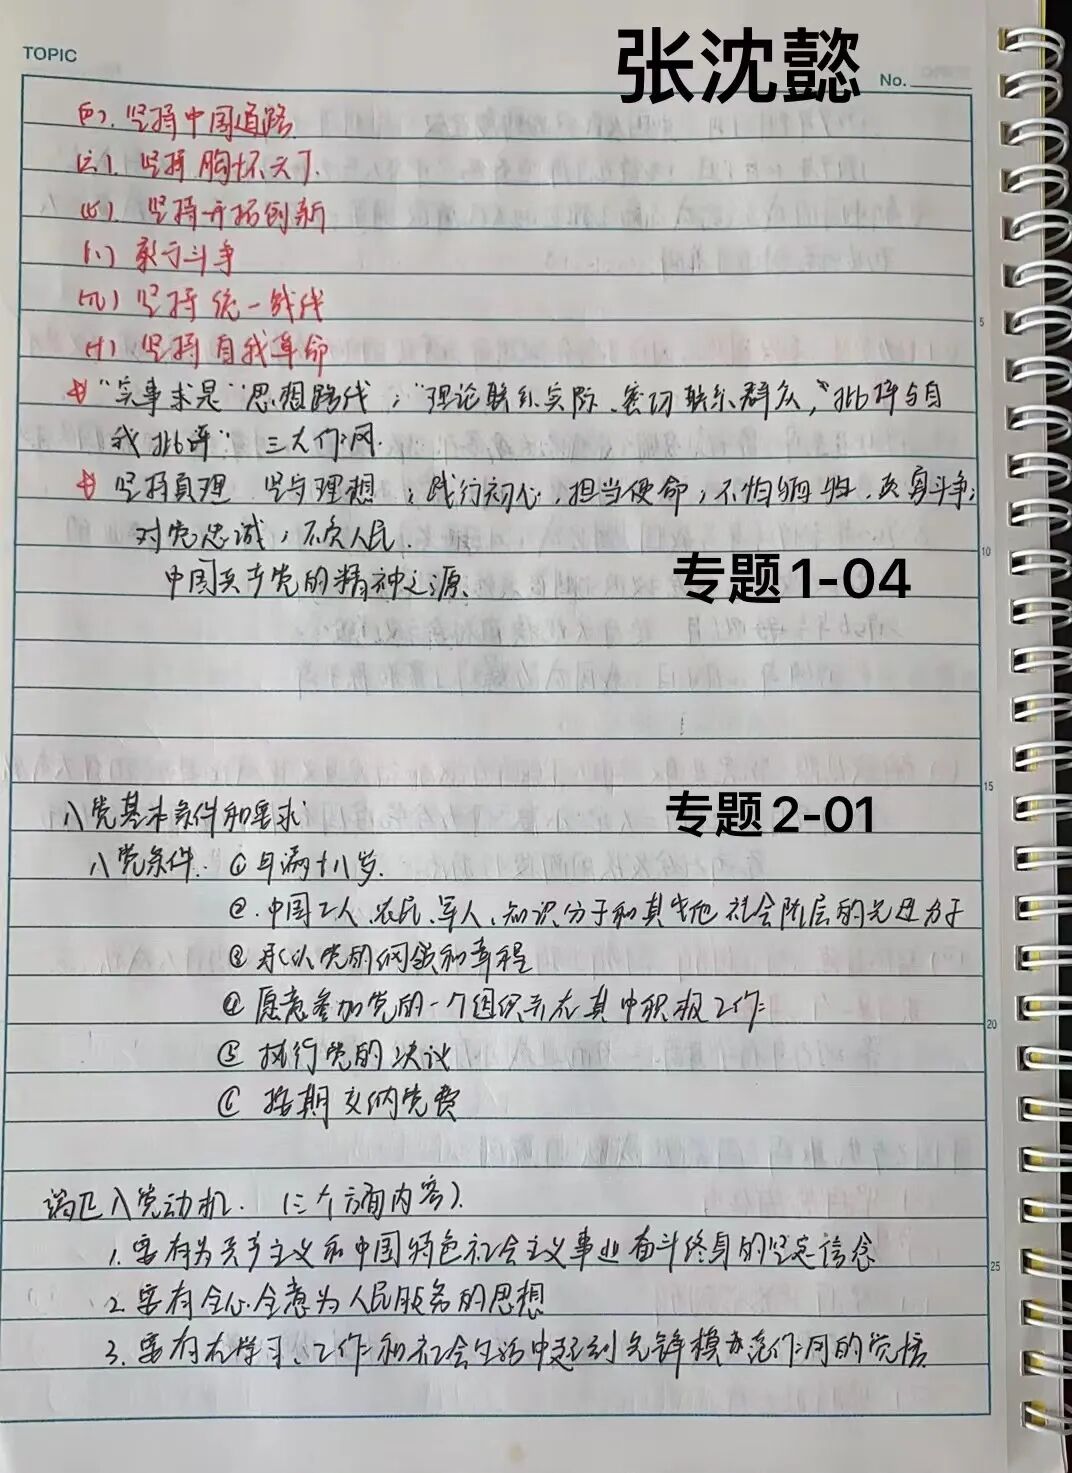 TOPIC
张沈懿
No.
坚持中国道路
(六). 坚持胸怀天下.
(七). 坚持开拓创新
(八) 敢于斗争
(九) 坚持统一战线
(十) 坚持自我革命
"实事求是"思想路线；"理论联系实际、密切联系群众，"批评与自
我批评" 三大作风.
坚持真理 坚守理想；践行初心，担当使命；不怕牺牲，英勇斗争；
对党忠诚，不负人民.
中国共产党的精神之源.
专题1-04
专题2-01
入党基本条件和要求
入党条件. ①年满十八岁.
②. 中国工人、农民、军人、知识分子和其他社会阶层的先进分子
③ 承认党的纲领和章程
④ 愿意参加党的一个组织并在其中积极工作
⑤ 执行党的决议
⑥ 按期交纳党费
端正入党动机. (三个方面内容).
1. 要有为共产主义和中国特色社会主义事业奋斗终身的坚定信念
2. 要有全心全意为人民服务的思想
3. 要有在学习、工作和社会生活中起到先锋模范作用的觉悟
5
10
15
20
25